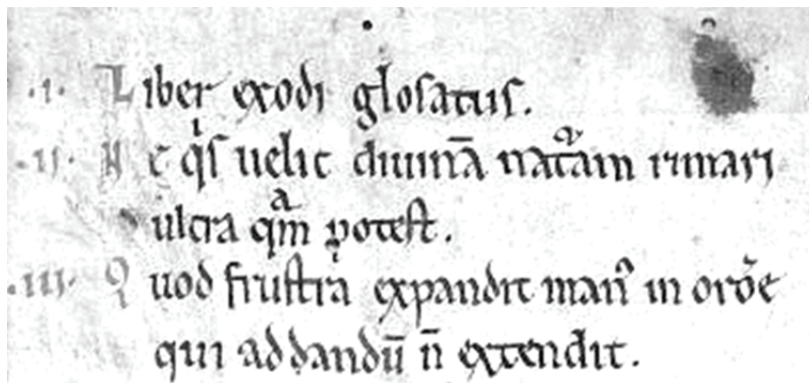 .I. Liber exodi glosatus.
.II. Ne qͥs uelit diuinā nat᷑am rimari
ultra qͣm potest.
.III. Quod frustra expandit manꝰ in orōe
qui ad dandū n̄ extendit.